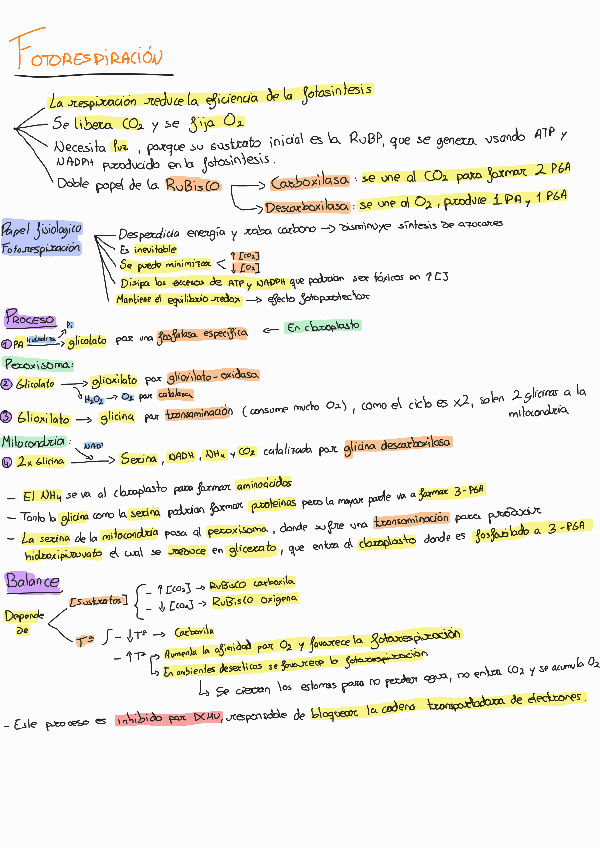 FOTORESPIRACIÓN
La respiración reduce la eficiencia de la fotosíntesis
Se libera CO2 y se fija O2
Necesita luz, porque su sustrato inicial es la RuBP, que se genera usando ATP y
NADPH producido en la fotosíntesis.
Doble papel de la RuBisCO → Carboxilasa: se une al CO2 para formar 2 PGA
→ Descarboxilasa: se une al O2, produce 1 PA y 1 PGA
Papel fisiologico
Fotorespiración
Desperdicia energía y roba carbono → Disminuye síntesis de azucares
Es inevitable
Se puede minimizar < ↑ [CO2]
↓ [O2]
Disipa los excesos de ATP y NADPH que podrían ser tóxicos en ↑ [ ]
Mantiene el equilibrio redox → efecto fotoprotector
PROCESO
① PA Hidrolisis → Pi → glicolato por una fosfatasa específica ← En cloroplasto
Peroxisoma:
② Glicolato → glioxilato por glioxilato-oxidasa
↳ H2O2 → O2 por catalasa
③ Glioxilato → glicina por transaminación (consume mucho O2), como el ciclo es x2, salen 2 glicinas a la
mitocondria
Mitocondria:
NAD+
④ 2x Glicina → Serina, NADH, NH4 y CO2 catalizada por glicina descarboxilasa
- El NH4 se va al cloroplasto para formar aminoácidos
- Tanto la glicina como la serina podrían formar proteinas pero la mayor parte va a formar 3-PGA
- La serina de la mitocondria pasa al peroxisoma, donde sufre una transaminación para producir
hidroxipiruvato el cual se reduce en glicerato, que entra al cloroplasto donde es fosforilado a 3-PGA
Balance
Depende
de
[sustratos] - ↑ [CO2] → RuBisCO carboxila
- ↓ [CO2] → RuBisCO oxigena
Tª - ↓ Tª → Carboxila
- ↑ Tª → Aumenta la afinidad por O2 y favorece la fotorespiración
→ En ambientes deserticos se favorece la fotorespiración
↳ Se cierran los estomas para no perder agua, no entra CO2 y se acumula O2
- Este proceso es inhibido por DCMU, responsable de bloquear la cadena transportadora de electrones.